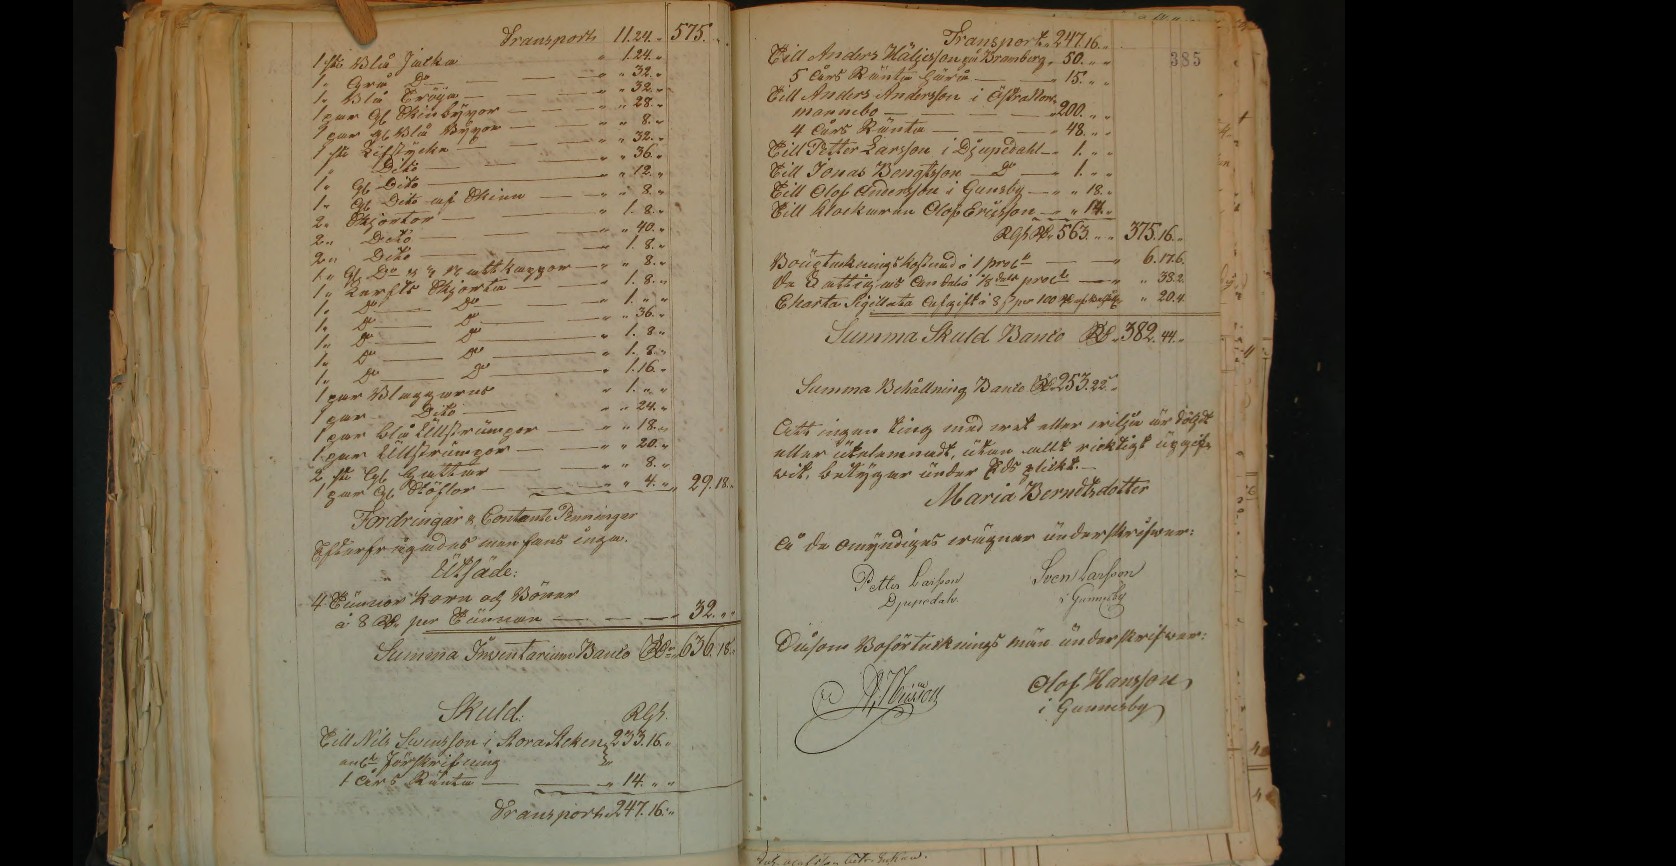 Transport 11.24. 575.
1 st. Blå Jacka 1.24.
1 Grå Do 32.
1 Blå Tröija 32.
1 par Gb Skinbÿxor 28.
1 par gb Blå Bÿxor 8.
1 st. Lifstÿcke 32.
1 Dito 36.
1 Gb Dito 12.
1 Gb Dito af Skinn 8.
2 Skjortor 1. 8.
2 Dito 40.
2 Dito 1. 8.
1 Gb Do 8.
1 Lerfts Skjorta 1. 8.
1 Do Do 1.
1 Do Do 36.
1 Do Do 1. 8.
1 Do Do 1. 8.
1 Do Do 1.16.
1 par Blaggarns 1.
1 par Dito 24.
1 par blå Ullstrümpor 18.
1 par Ullstrümpor 20.
2 st. Gb Hattar 8.
1 par Gb Stöflor 4. 29.18.
Fordringar & Contante Penningar
Efterfrågades men fans inga.
Utsäde:
4 Tünnor Korn och Bönor
à 8 Rd per Tünnan 32.
Summa Inventarium Banco Rd 636.18.
Skuld: RGs.
Till Nils Swensson i Stora Steken 233.16.
Förskrifning
1 Års Ränta 14.
Transport 247.16.
Transport 247.16.
385
Till Anders Häljesson på Bramberg 50.
5 Års Ränta 15.
Till Anders Andersson i
mannebo 200.
4 Års Ränta 48.
Till Petter Larsson i Djupedahl 1.
Till Jonas Bengtsson Do 1.
Till Olof Andersson i Gunsby 18.
Till Klockaren Olof Ericsson 14.
RGs Rd 563. 375.16.
Boüptekningskostnad à 1 proCt 6.17.6.
De Fattigas Andel à 1/8 dels proCt 38.2
Charta Sigillata Aufgift à 8 s per 100 Rd 20.4.
Summa Skuld Banco Rd 382.44.
Summa Behållning Banco Rd 253.22.
Att ingen ting med wet eller wilja är döljdt
eller ütelemnadt, ütan allt ricktigt üpgif-
wit, betÿgar ünder Eds plickt.
Maria Berndtsdotter
På de Omÿndigas wägnar ünderskrifwer:
Petter Larsson Sven Larsson
Djupedahl i Gunnesby
Såsom Boförtekningsmän ünderskrifwer:
Olof Hansson
i Gunnesby